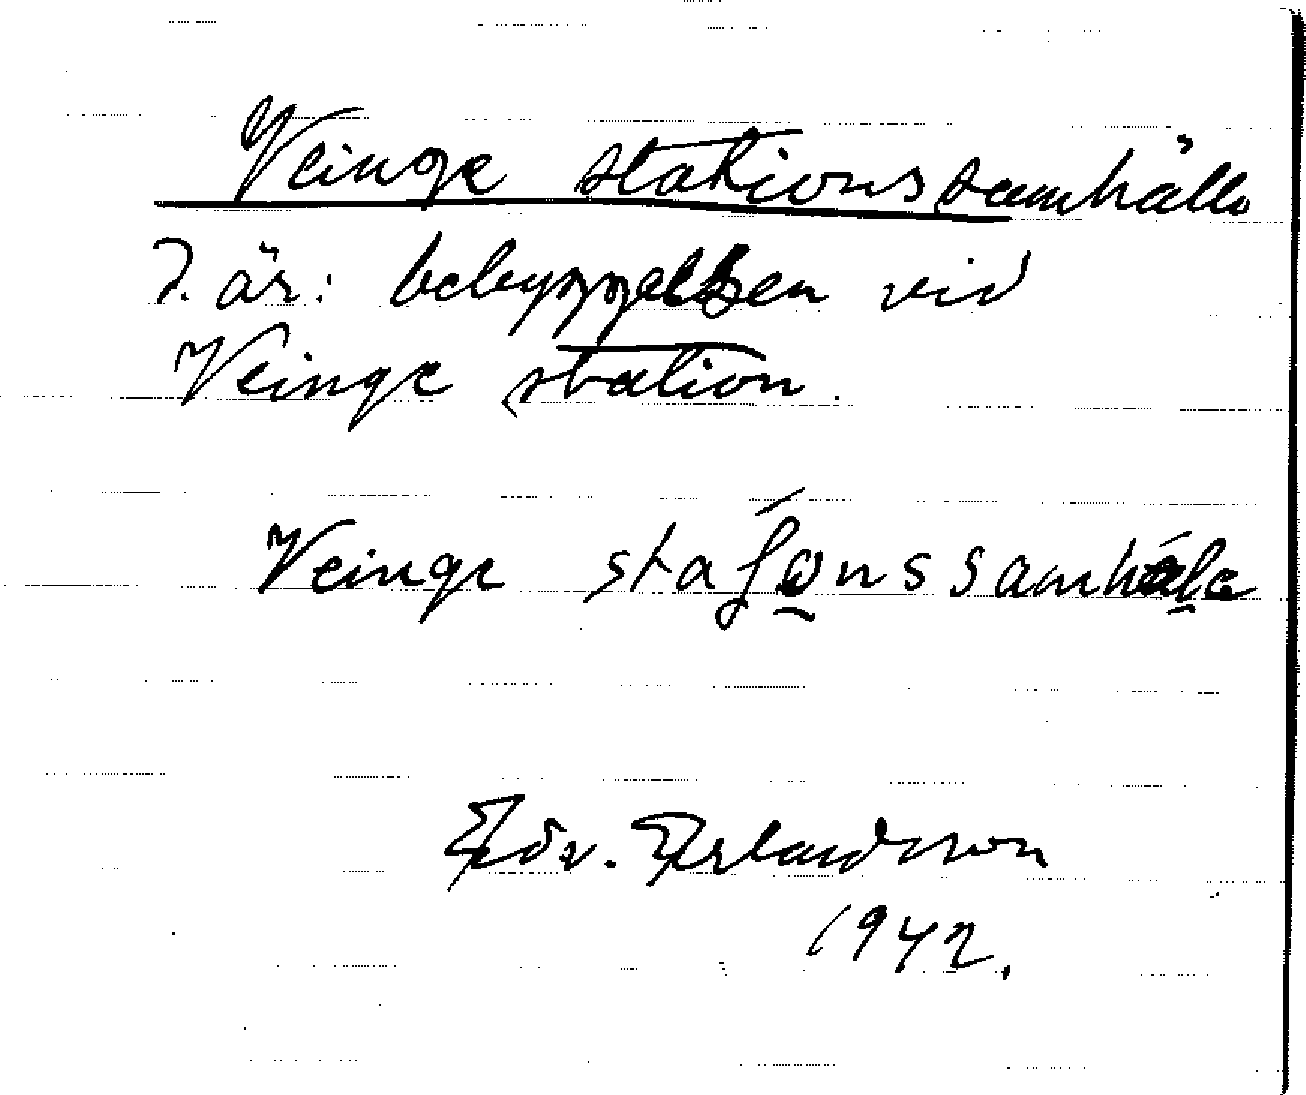 Veinge stationssamhälle
D. är: bebyggelsen vid
Veinge station.
Veinge staʃo̱nssamhäl̠e
Edv. Erlandsson
1942.